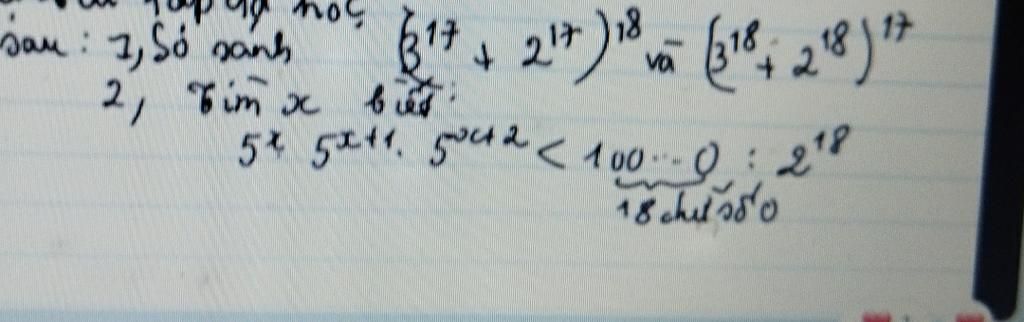 sau: 1, Só sánh (3¹⁷ + 2¹⁷)¹⁸ và (3¹⁸ + 2¹⁸)¹⁷
2, Tìm x biết:
5ˣ 5ˣ⁺¹. 5ˣ⁺² < 100...0 : 2¹⁸
18 chữ số 0